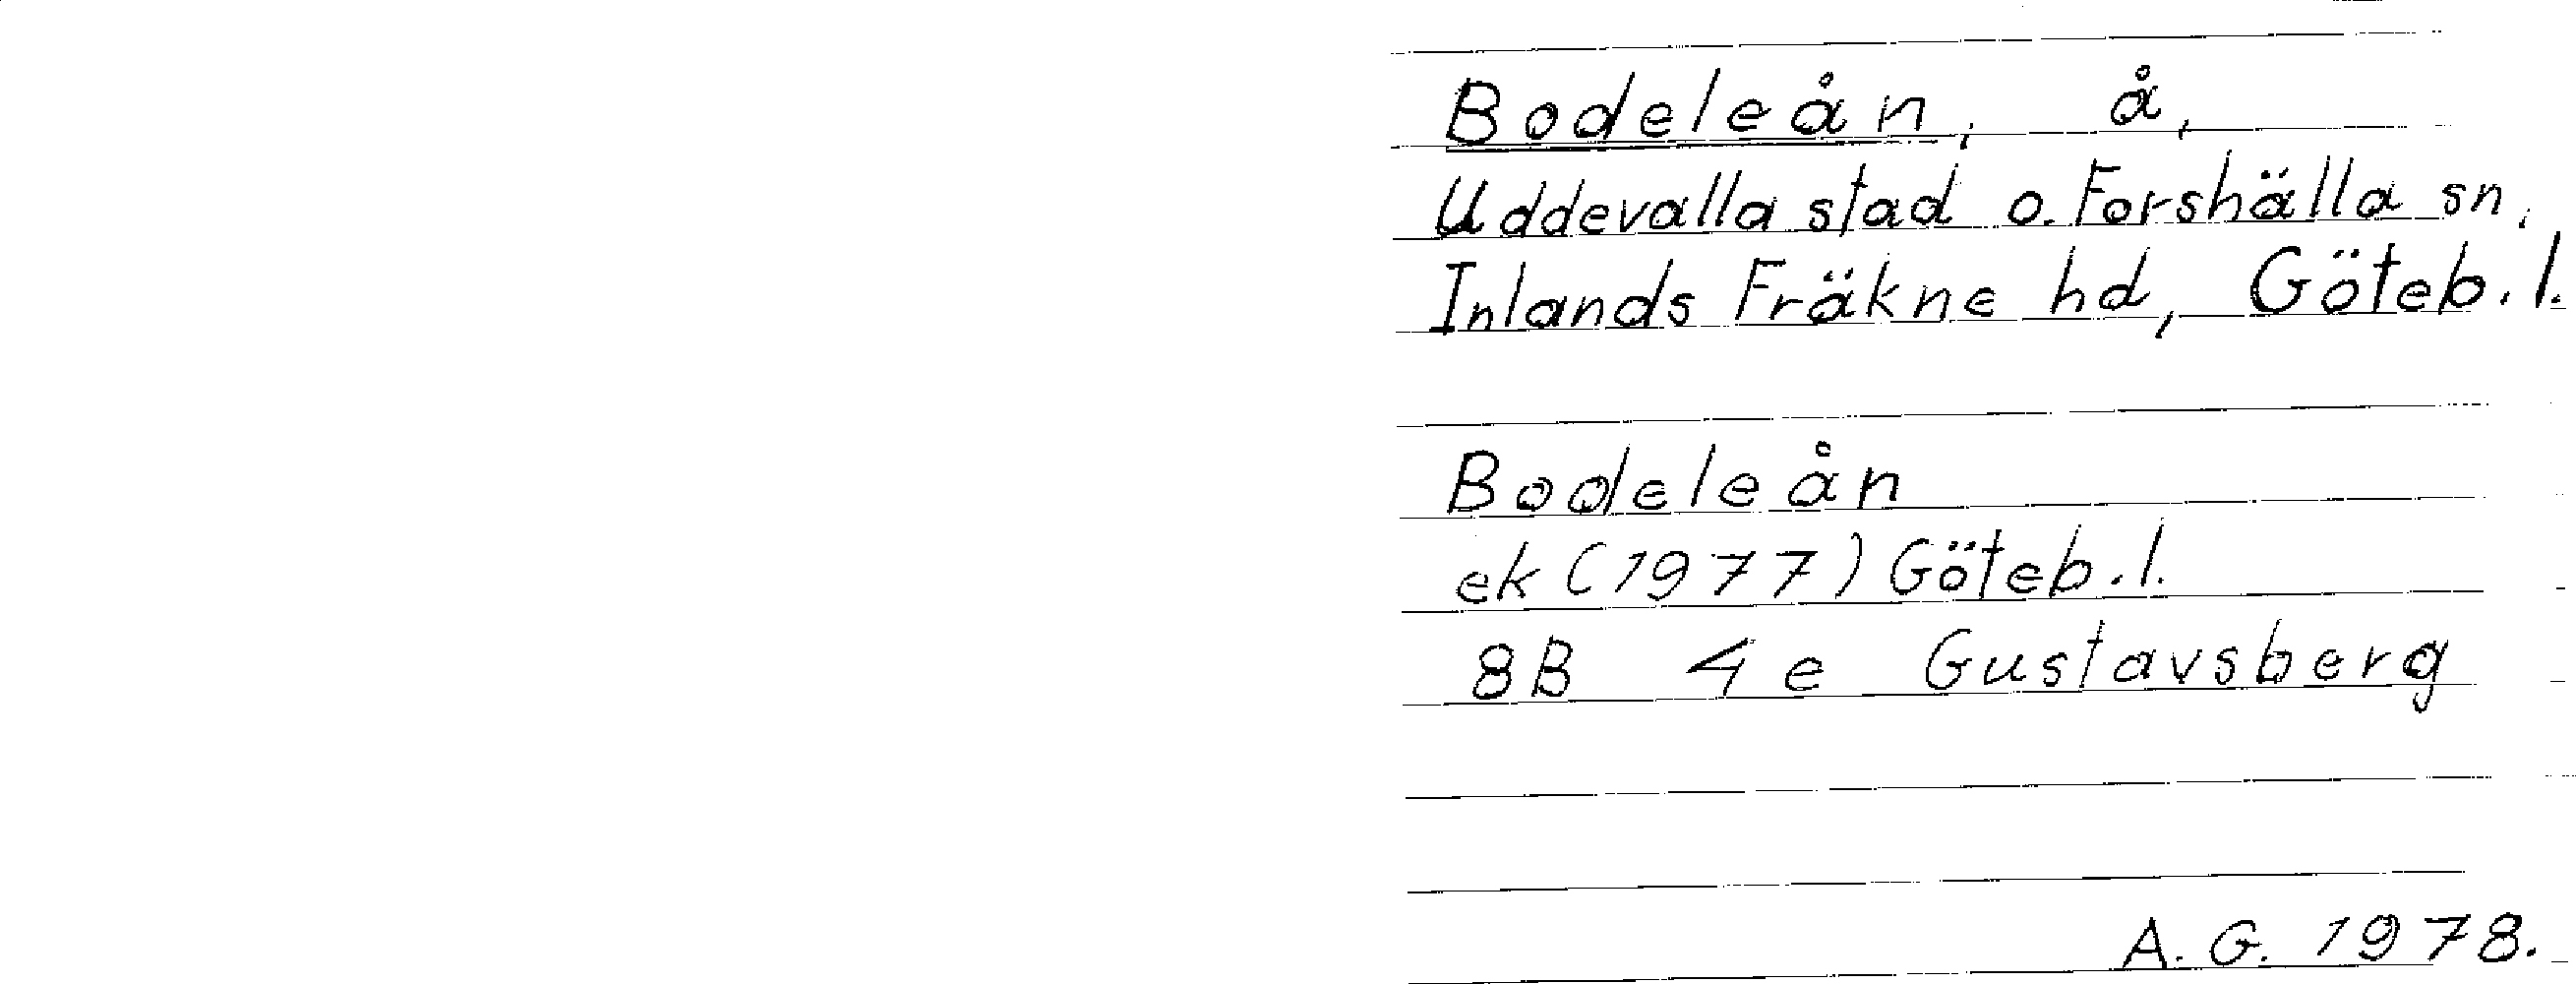 Bodeleån, å,
Uddevalla stad o. Forshälla sn,
Inlands Fräkne hd, Göteb. l.
Bodeleån
ek (1977) Göteb. l.
8B 4e Gustavsberg
A. G. 1978.